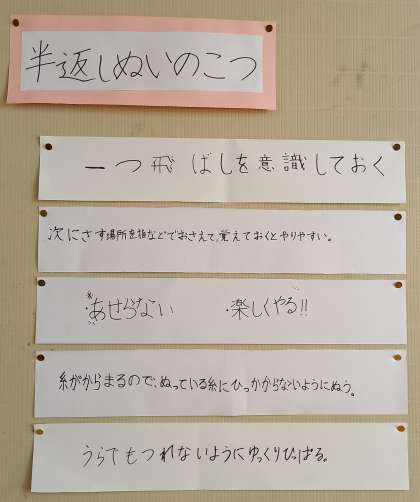 半返しぬいのこつ
一つ飛ばしを意識しておく
次にさす場所を指などでおさえて、覚えておくとやりやすい。
・あせらない ・楽しくやる!!
糸がからまるので、ぬっている糸にひっかからないようにぬう。
うらでもつれないようにゆっくりひっぱる。